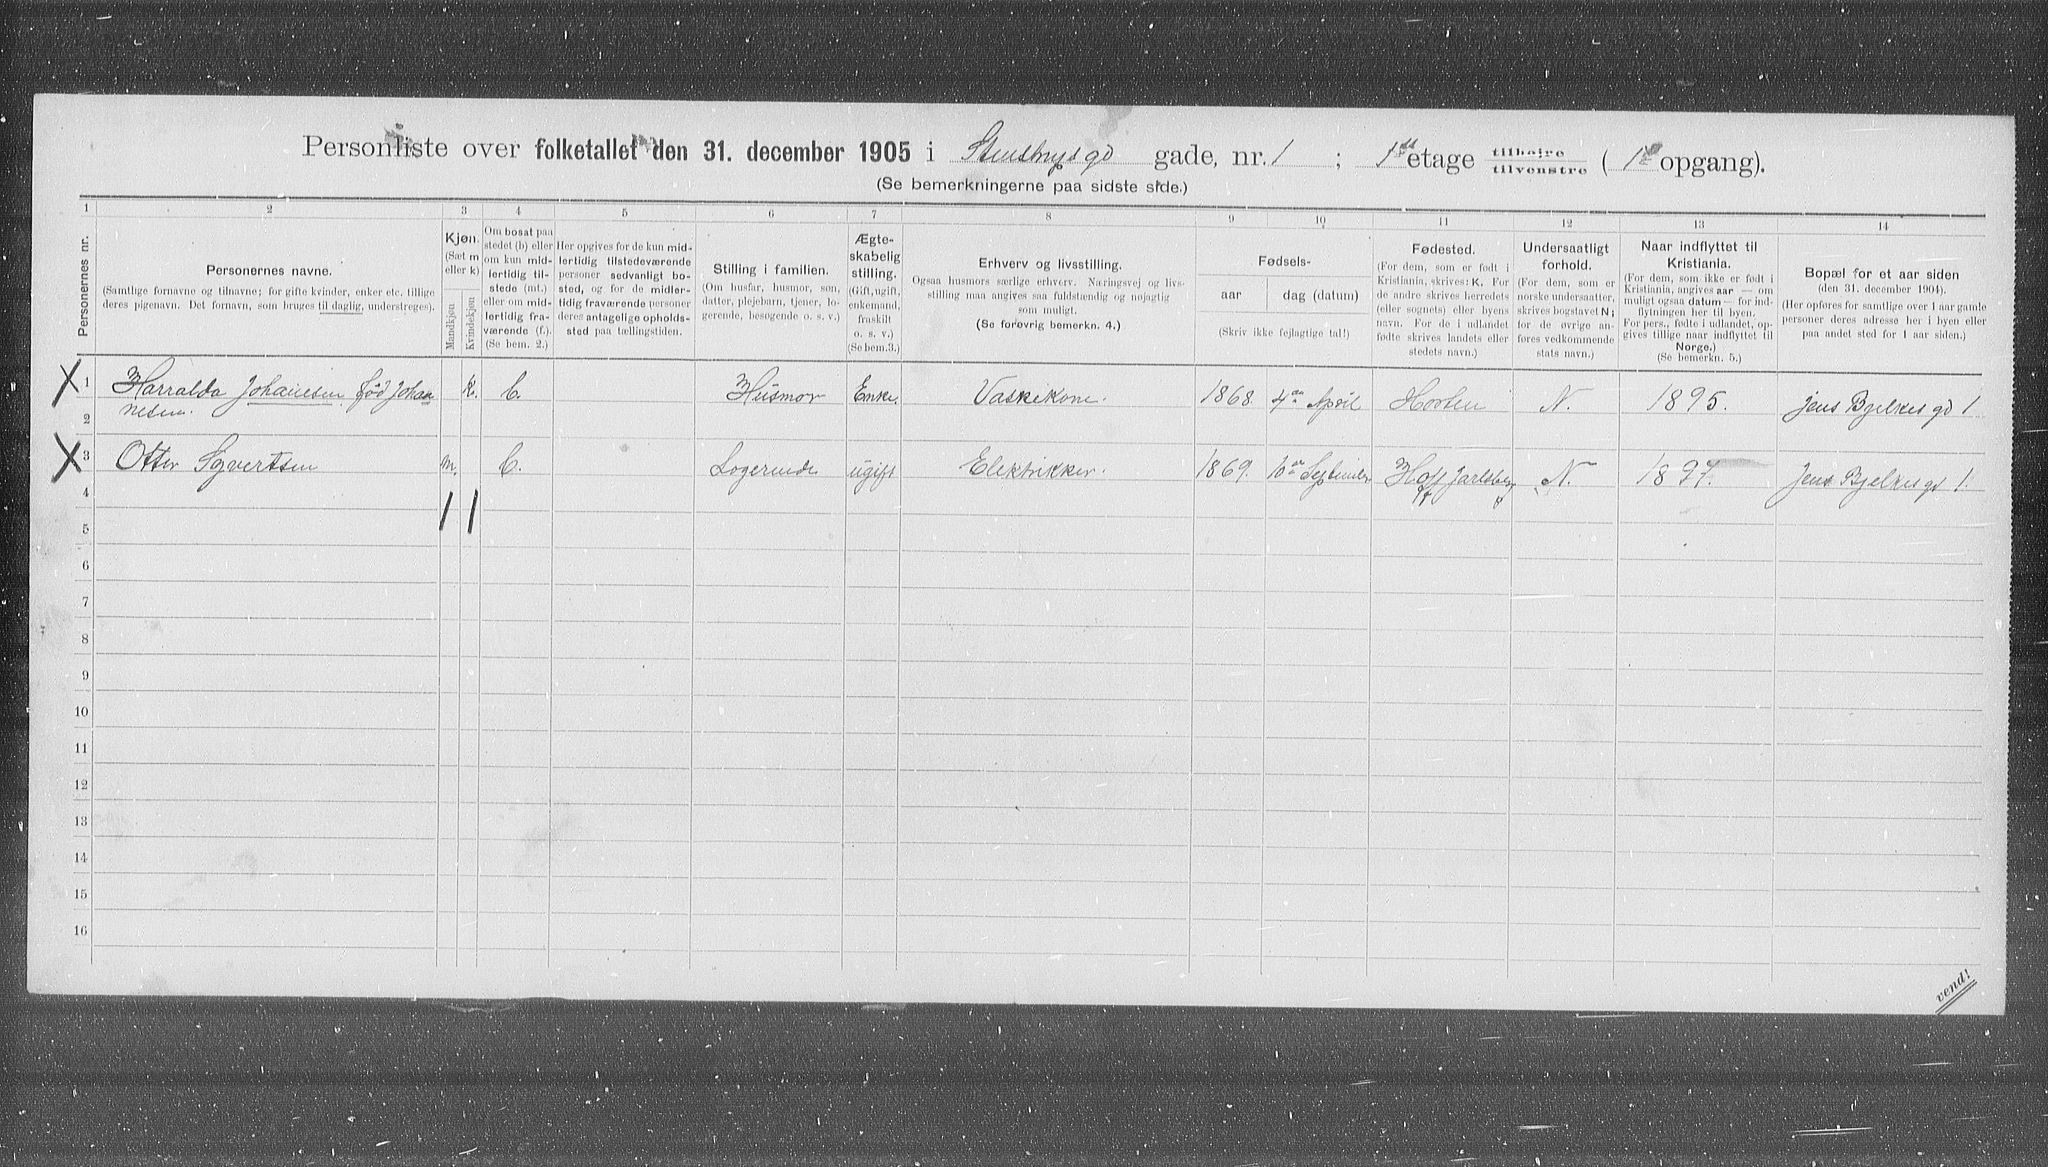 Personliste over folketallet den 31. december 1905 i Stenstrupsgd gade, nr. 1 ; 1ste etage tilhøire tilvenstre ( 1ste opgang).
(Se bemerkningerne paa sidste side.)
1 2 3 4 5 6 7 8 9 10 11 12 13 14
Personernes nr.
Personernes navne.
(Samtlige fornavne og tilnavne; for gifte kvinder, enker etc. tillige
deres pigenavn. Det fornavn, som bruges til daglig, understreges).
Kjøn.
(Sæt m
eller k)
Mandkjøn
Kvindekjøn
Om bosat paa
stedet (b) eller
om kun mid-
lertidig til-
stede (mt.)
eller om mid-
lertidig fra-
værende (f.)
(Se bem. 2.)
Her opgives for de kun mid-
lertidig tilstedeværende
personer sedvanligt bo-
sted, og for de midler-
tidig fraværende personer
deres antagelige opholds-
sted paa tællingstiden.
Stilling i familien.
(Om husfar, husmor, søn,
datter, plejebarn, tjener, lo-
gerende, besøgende o. s. v.)
Ægte-
skabelig
stilling.
(Gift, ugift,
enkemand,
fraskilt
o. s. v.)
(Se bem.3.)
Erhverv og livsstilling.
Ogsaa husmors særlige erhverv. Næringsvej og livs-
stilling maa angives saa fuldstændig og nøjagtig
som muligt.
(Se forøvrig bemerkn. 4.)
Fødsels-
aar dag (datum)
(Skriv ikke fejlagtige tal!)
Fødested.
(For dem, som er født i
Kristiania, skrives: K. For
de andre skrives herredets
(eller sognets) eller byens
navn. For de i udlandet
fødte skrives landets eller
stedets navn.)
Undersaatligt
forhold.
(For dem, som er
norske undersaatter,
skrives bogstavet N;
for de øvrige an-
føres vedkommende
stats navn.)
Naar indflyttet til
Kristiania.
(For dem, som ikke er født i
Kristiania, angives aar — om
muligt ogsaa datum — for ind-
flytningen her til byen.
For pers., fødte i udlandet, op-
gives tillige naar indflyttet til
Norge.)
(Se bemerkn. 5.)
Bopæl for et aar siden
(den 31. december 1904).
(Her opføres for samtlige over 1 aar gamle
personer deres adresse her i byen eller
paa andet sted for 1 aar siden.)
X 1 Harralda Johanesen født Johan k. b. Husmor Enke. Vaskekone. 1868 4de April Horten N. 1895. Jens Bjelkes gd 1
2 nesen.
X 3 Otter Syvertsen m. b. Logerende ugift Elektrikker. 1869. 10de September Hoff Jarlsberg N. 1897. Jens Bjelkes gd 1.
4
1 1
5
6
7
8
9
10
11
12
13
14
15
16
vend!